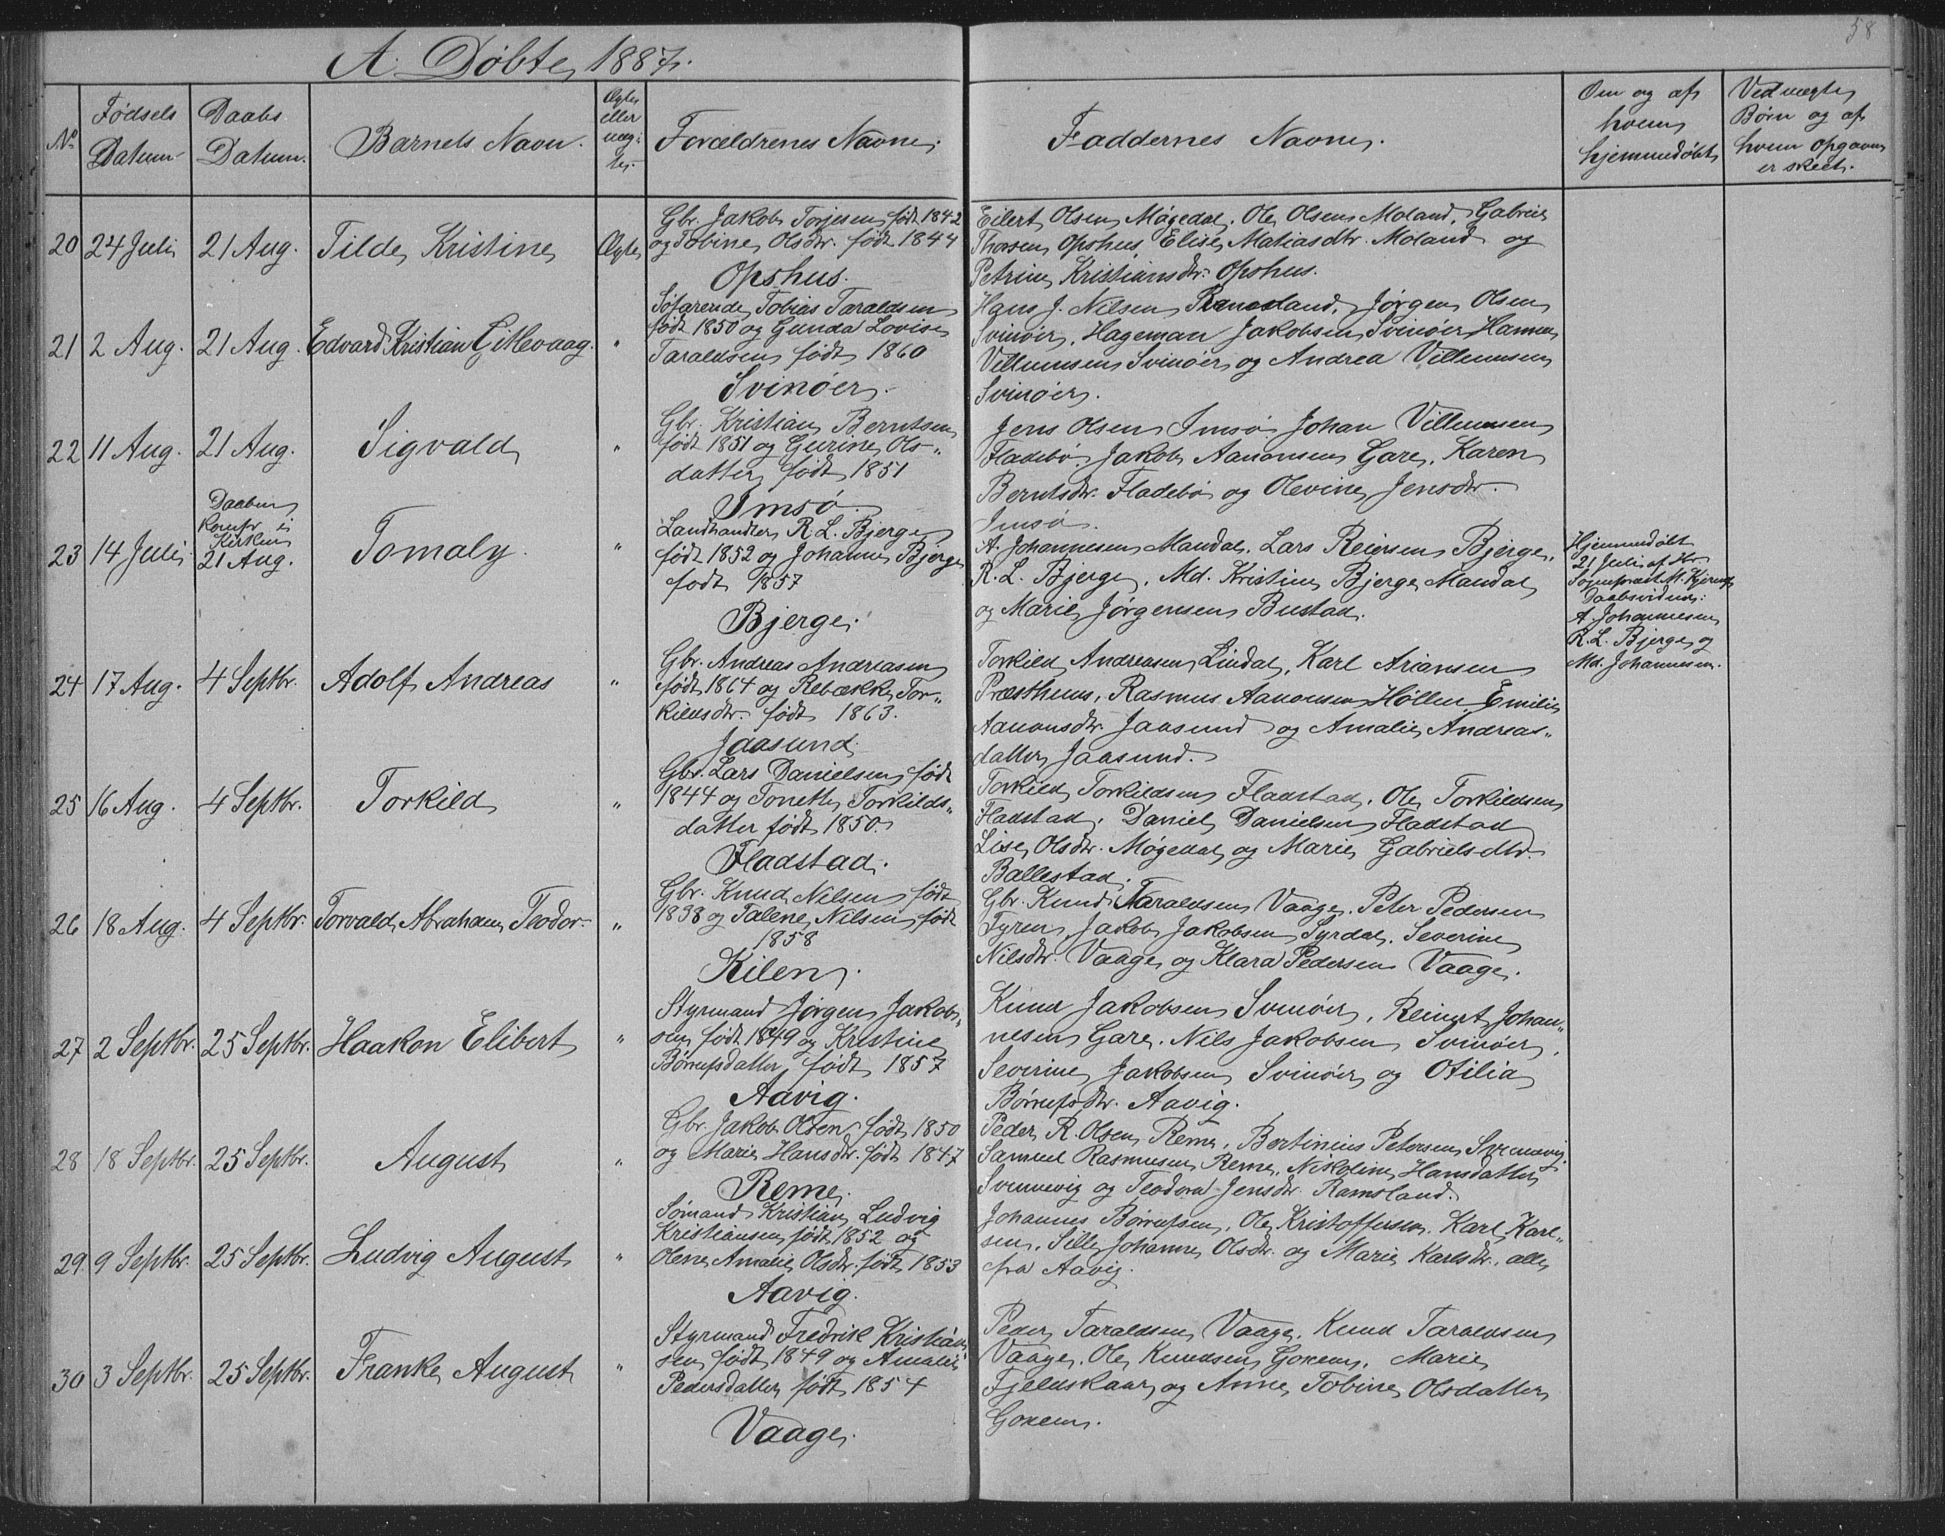 58
A. Döbte, 1887.
No
Fødsels Datum
Daabs Datum.
Barnets Navn.
Ægte eller uæg: te.
Forældrenes Navne.
Faddernes Navne.
Om og af hvem hjemmedøbt
Ved uægte Børn og af hvem Opgaven er skeet.
20 24 Juli 21 Aug. Tilde Kristine Ægte
Gbr. Jakob Torjesen født 1842
og Tobine Olsdtr. født 1844
Opshus.
Eilert Olsen Møgedal, Ole Olsen Moland, Gabriel
Thorsen Opshus, Elise Matiasdtr. Moland og
Petrine Kristiansdtr. Opshus.
21 2 Aug. 21 Aug. Edvard Kristian Gitlevaag. "
Søfarende Tobias Taraldsen
født 1850 og Gunda Lovise
Taraldsen født 1860
Svinöer.
Hans J. Nilsen Ramsland, Jørgen Olsen
Svinöer, Hageman Jakobsen Svinöer, Hanne
Villumsen Svinöer og Andrea Villumsen
Svinöer.
22 11 Aug. 21 Aug. Sigvald "
Gbr. Kristian Berntsen
født 1851 og Gurine Ols-
datter født 1851
Imsö.
Jens Olsen Imsö, Johan Villumsen
Fladebö, Jakob Aanonsen Gare, Karen
Berntsdtr. Fladebö og Olevine Jensdtr.
Imsö.
23 14 Juli
Daaben
Konfr. i
Kirken
21 Aug.
Tomaly. "
Landhandler R. L. Bjerge
født 1852 og Johanne Bjerge
født 1857
Bjerge.
A. Johannesen Mandal, Lars Reiersen Bjerge,
R. L. Bjerge, Md. Kristine Bjerge Mandal
og Marie Jørgensen Bustad.
Hjemmedøbt
21 Juli af Hr.
Sognepræst M. Kjerulf
Daabsvidner:
A. Johannesen
R. L. Bjerge og
Md. Johannesen.
24 17 Aug. 4 Septbr. Adolf Andreas "
Gbr. Andreas Andreasen
født 1864 og Rebække Tor-
kildsdtr. født 1863.
Jaasund.
Torkild Andreasen Lindal, Karl Ariansen
Præsthuus, Rasmus Aanonsen Høllen, Emilie
Aanonsdtr. Jaasund og Amalie Andreas-
datter Jaasund.
25 16 Aug. 4 Septbr. Torkild "
Gbr. Lars Danielsen født
1844 og Tonette Torkilds-
datter født 1850.
Fladstad.
Torkild Torkildsen Fladstad, Ole Torkildsen
Fladstad, Daniel Danielsen Fladstad
Lise Olsdtr. Møgedal og Marie Gabrielsdtr.
Ballestad.
26 18 Aug. 4 Septbr. Torvald Abraham Teodor. "
Gbr. Knud Nilsen født
1838 og Talene Nilsen født
1858
Kilen.
Gbr. Knud Taraldsen Vaage, Peter Pedersen
Fyren, Jakob Jakobsen Syrdal, Severine
Nilsdtr. Vaage og Klara Pedersen Vaage.
27 2 Septbr. 25 Septbr. Haakon Elibert "
Styrmand Jørgen Jakob-
sen født 1849 og Kristine
Børrufsdatter født 1857
Aavig.
Knud Jakobsen Svinöer, Reinert Johan-
nesen Gare, Nils Jakobsen Svinöer,
Severine Jakobsen Svinöer og Otilia
Børrufsdtr. Aavig.
28 18 Septbr. 25 Septbr. August "
Gbr. Jakob Olsen født 1850
og Marie Hansdtr. født 1847
Reme.
Peder R. Olsen Reme, Bertinius Petersen Svennevig,
Samuel Rasmusen Reme, Nikoline Hansdatter
Svennevig og Teodora Jensdtr. Ramsland.
29. 9 Septbr. 25 Septbr. Ludvig August "
Sömand Kristian Ludvig
Kristiansen født 1852 og
Olene Amalie Olsdtr. født 1853
Aavig.
Johannes Børrufsen, Ole Kristoffersen, Karl Karl-
sen, Sille Johanne Olsdtr. og Marie Karlsdtr. alle
fra Aavig.
30 3 Septbr. 25 Septbr. Franke August "
Styrmand Fredrik Kristian-
sen født 1849 og Amalie
Pedersdatter født 1854
Vaage.
Peder Taraldsen Vaage, Knud Taraldsen
Vaage, Ole Knudsen Goxem, Marie
Fjeldskaar og Anne Tobine Olsdatter
Goxem.